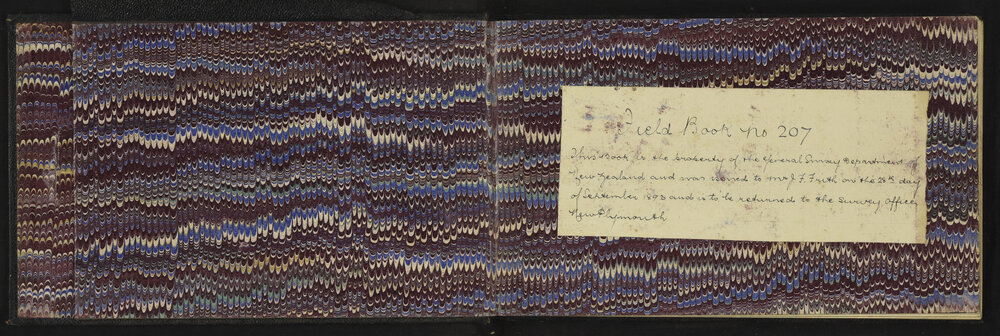 Field Book no 207
This Book is the property of the General Survey Department
New Zealand and was issued to Mr J. F. Frith on the 28th day
of September 1893 and is to be returned to the Survey Office,
New Plymouth